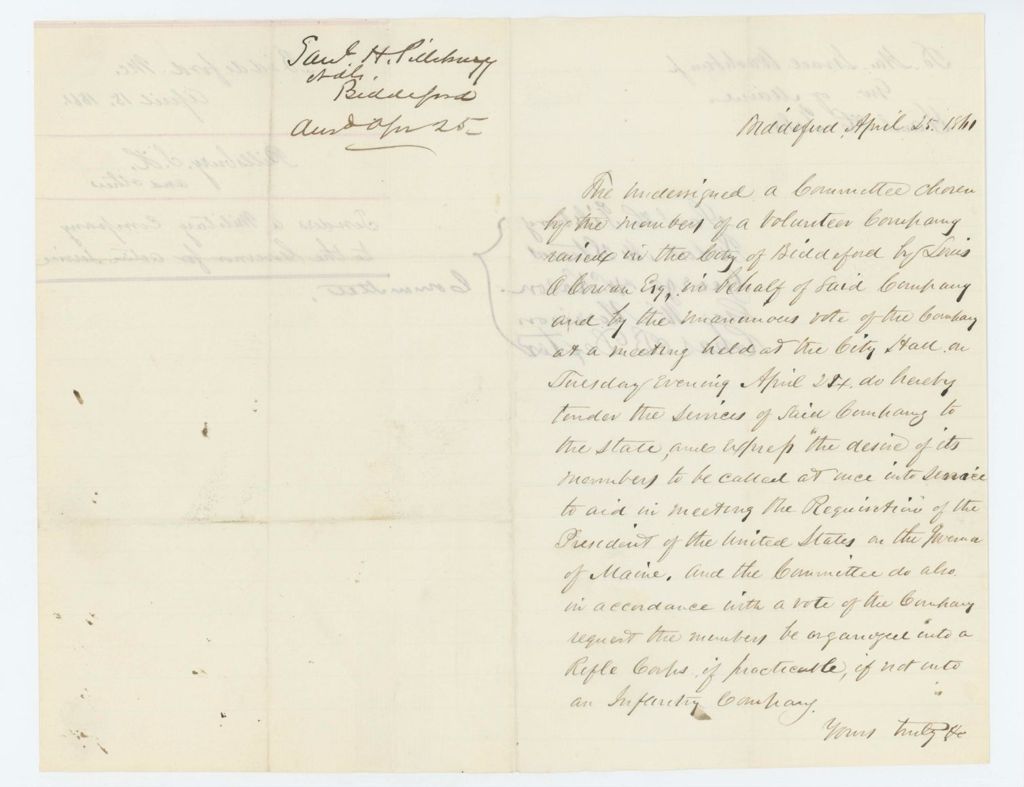 Saml H. Pillsbury
Adli.
Biddeford
Ansd Apr 25
Biddeford, April 25. 1861
The undersigned a Committee chosen
by the members of a Volunteer Company
raised in the City of Biddeford by Louis
O Cowan Esq, in behalf of said Company
and by the unanimous vote of the Company
at a meeting held at the City Hall on
Tuesday Evening April 24. do hereby
tender the services of said Company to
the State, and express the desire of its
members to be called at once into service
to aid in meeting the Requisition of the
President of the United States on the Governor
of Maine. And the Committee do also
in accordance with a vote of the Company
request the members be organized into a
Rifle Corps if practicable, if not into
an Infantry Company.
Yours truly &c